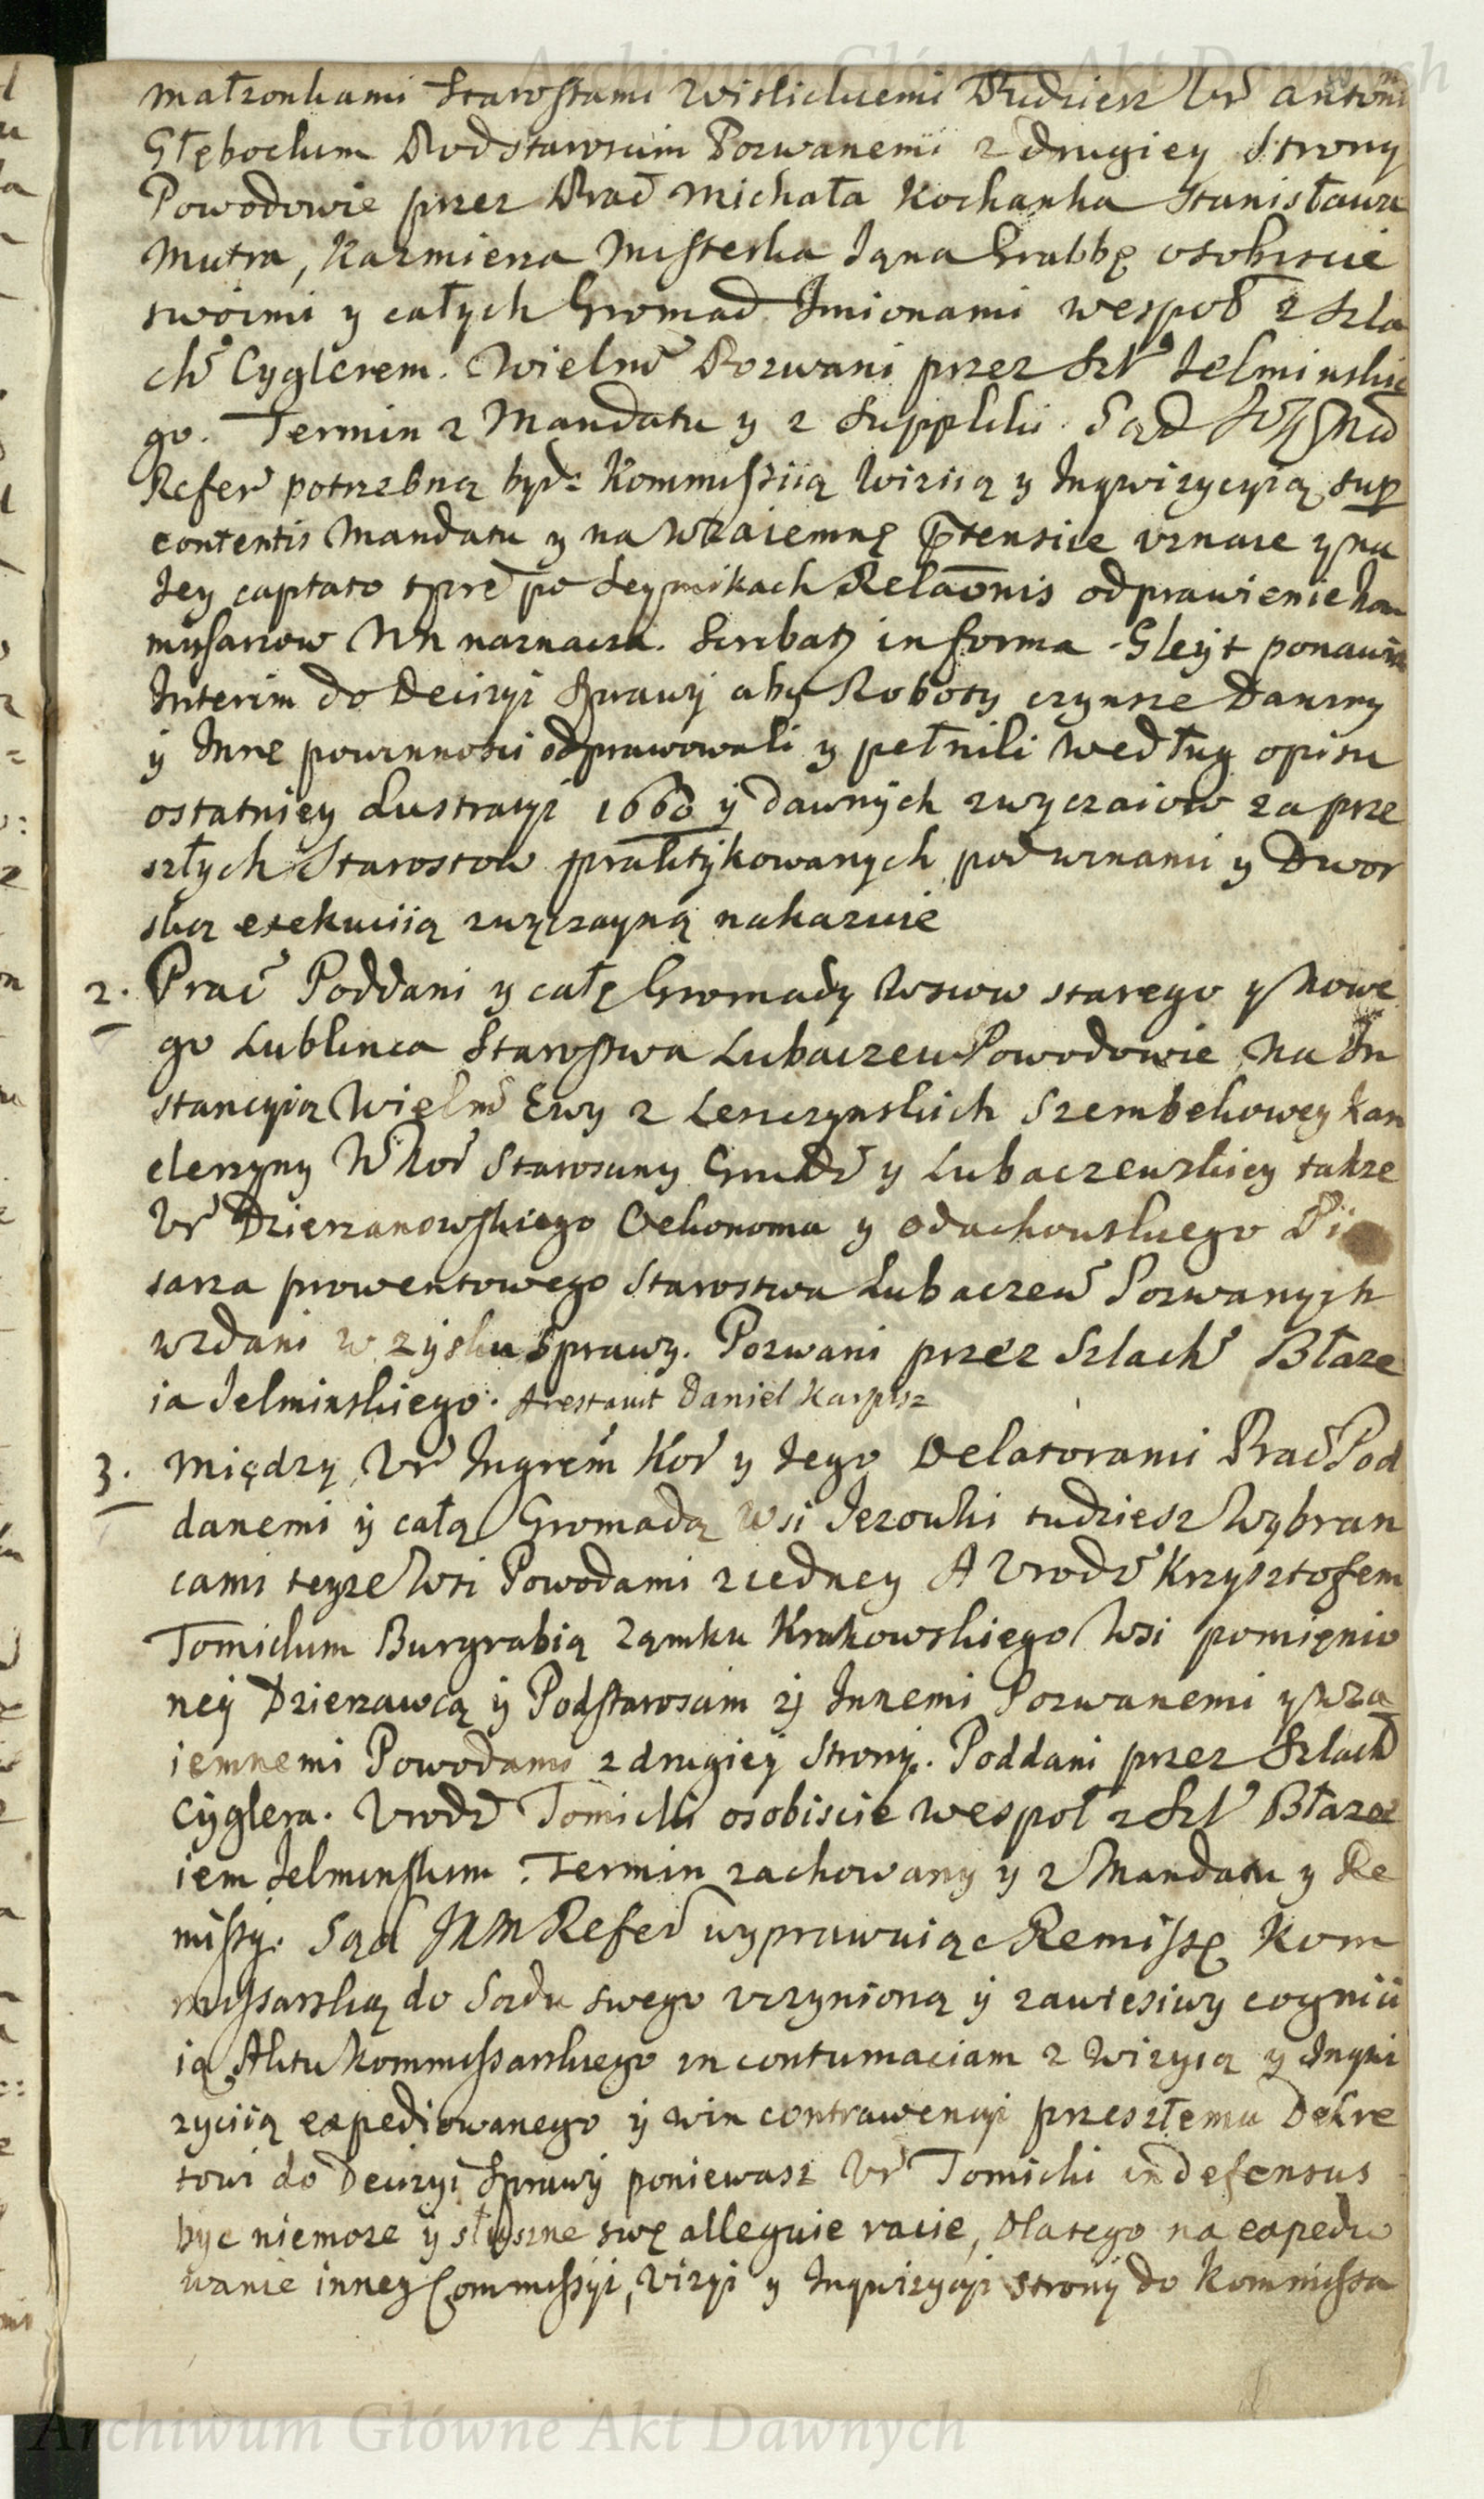 Archiwum Główne Akt Dawnych
małzonkami Starostami Wislickiemi Tudziesz Ur Antonim
Głębockim Podstaroscim Pozwanemi z drugiey Strony
Powodowie przez Prac Michała Kochanka Stanisława
Mutra, Kazmierza Misterka Jana Grabbę osobiscie
swoimi y całych Gromad Imionami wespoł z Szla
ch Cyglerem. Wielm Pozwani przez Szl Jelminskie
go. Termin z Mandatu y z Suppliki. Sąd
Refer potrzebną bydz Kommissiią Wiziią y Inqwizycyią sup
contentis Mandatu y na Wzaiemnę Ptensie uznaie y na
Jey captato tpre po Seymikach Relaonis odprawienie kom
missarzow NN naznacza. Scribatz in forma. Gleyt ponawia
Interim do Decizyi Sprawy aby Roboty czynsze Daniny
y Inne powinnosci odprawowali y pełnili według opisu
ostatniey Lustracyi 1660 y dawnych zwyczaiow za prze
szłych Starostow praktykowanych pod winami y Dwor
ską exekuciią zwyczayną nakazuie
2. Prac Poddani y całę Gromady Wsiow starego y Nowe
go Lublinca Starostwa Lubaczew Powodowie Na In
stancyią Wielm Ewy z Leszczynskich Szembekowey kan
clerzyny W Kor Starosciny Grudz y Lubaczewskiey takze
Ur Dzierzanowskiego Oekonoma y Odachowskiego Pi
sarza prowentowego Starostwa Lubaczew Pozwanych
wzdani w zysku sprawy. Pozwani przez Szlach Błaze
ia Jelminskiego. Arestavit Daniel Karpisz
3. Między Ur Instigem Kor y Jego Delatorami Prac Pod
danemi y całą Gromadą Wsi Jezowki tudziesz Wybran
cami teyze Wsi Powodami z iedney A Urodz Krzysztofem
Tomickim Burgrabią Zamku Krakowskiego Wsi pomienio
ney Dzierzawcą y Podstaroscim y Innemi Pozwanemi y wza
iemnemi Powodami z drugiey Strony. Poddani przez Szlach
Cyglera. Urodz Tomicki osobiscie wespoł z Szl Błaze
iem Jelminskim. Termin zachowany y z Mandatu y Re
missy. Sąd JKM Refer wyprawuiąc Remissę Kom
missarską do Sądu swego uczynioną y zawiesiwszy cognicii
ią Aktu kommissarskiego in contumaciam z Wizyią y Inqwi
zyciią expediowanego y win contrawencyi przeszłemu Dekre
towi do Decizyi Sprawy poniewasz Ur Tomicki indefensus
byc niemoze y słuszne swę alleguie racie, Dlatego na expedio
wanie inney Commissyi, Wizyi y Inqwizycyi strony do Kommissa
Archiwum Główne Akt Dawnych